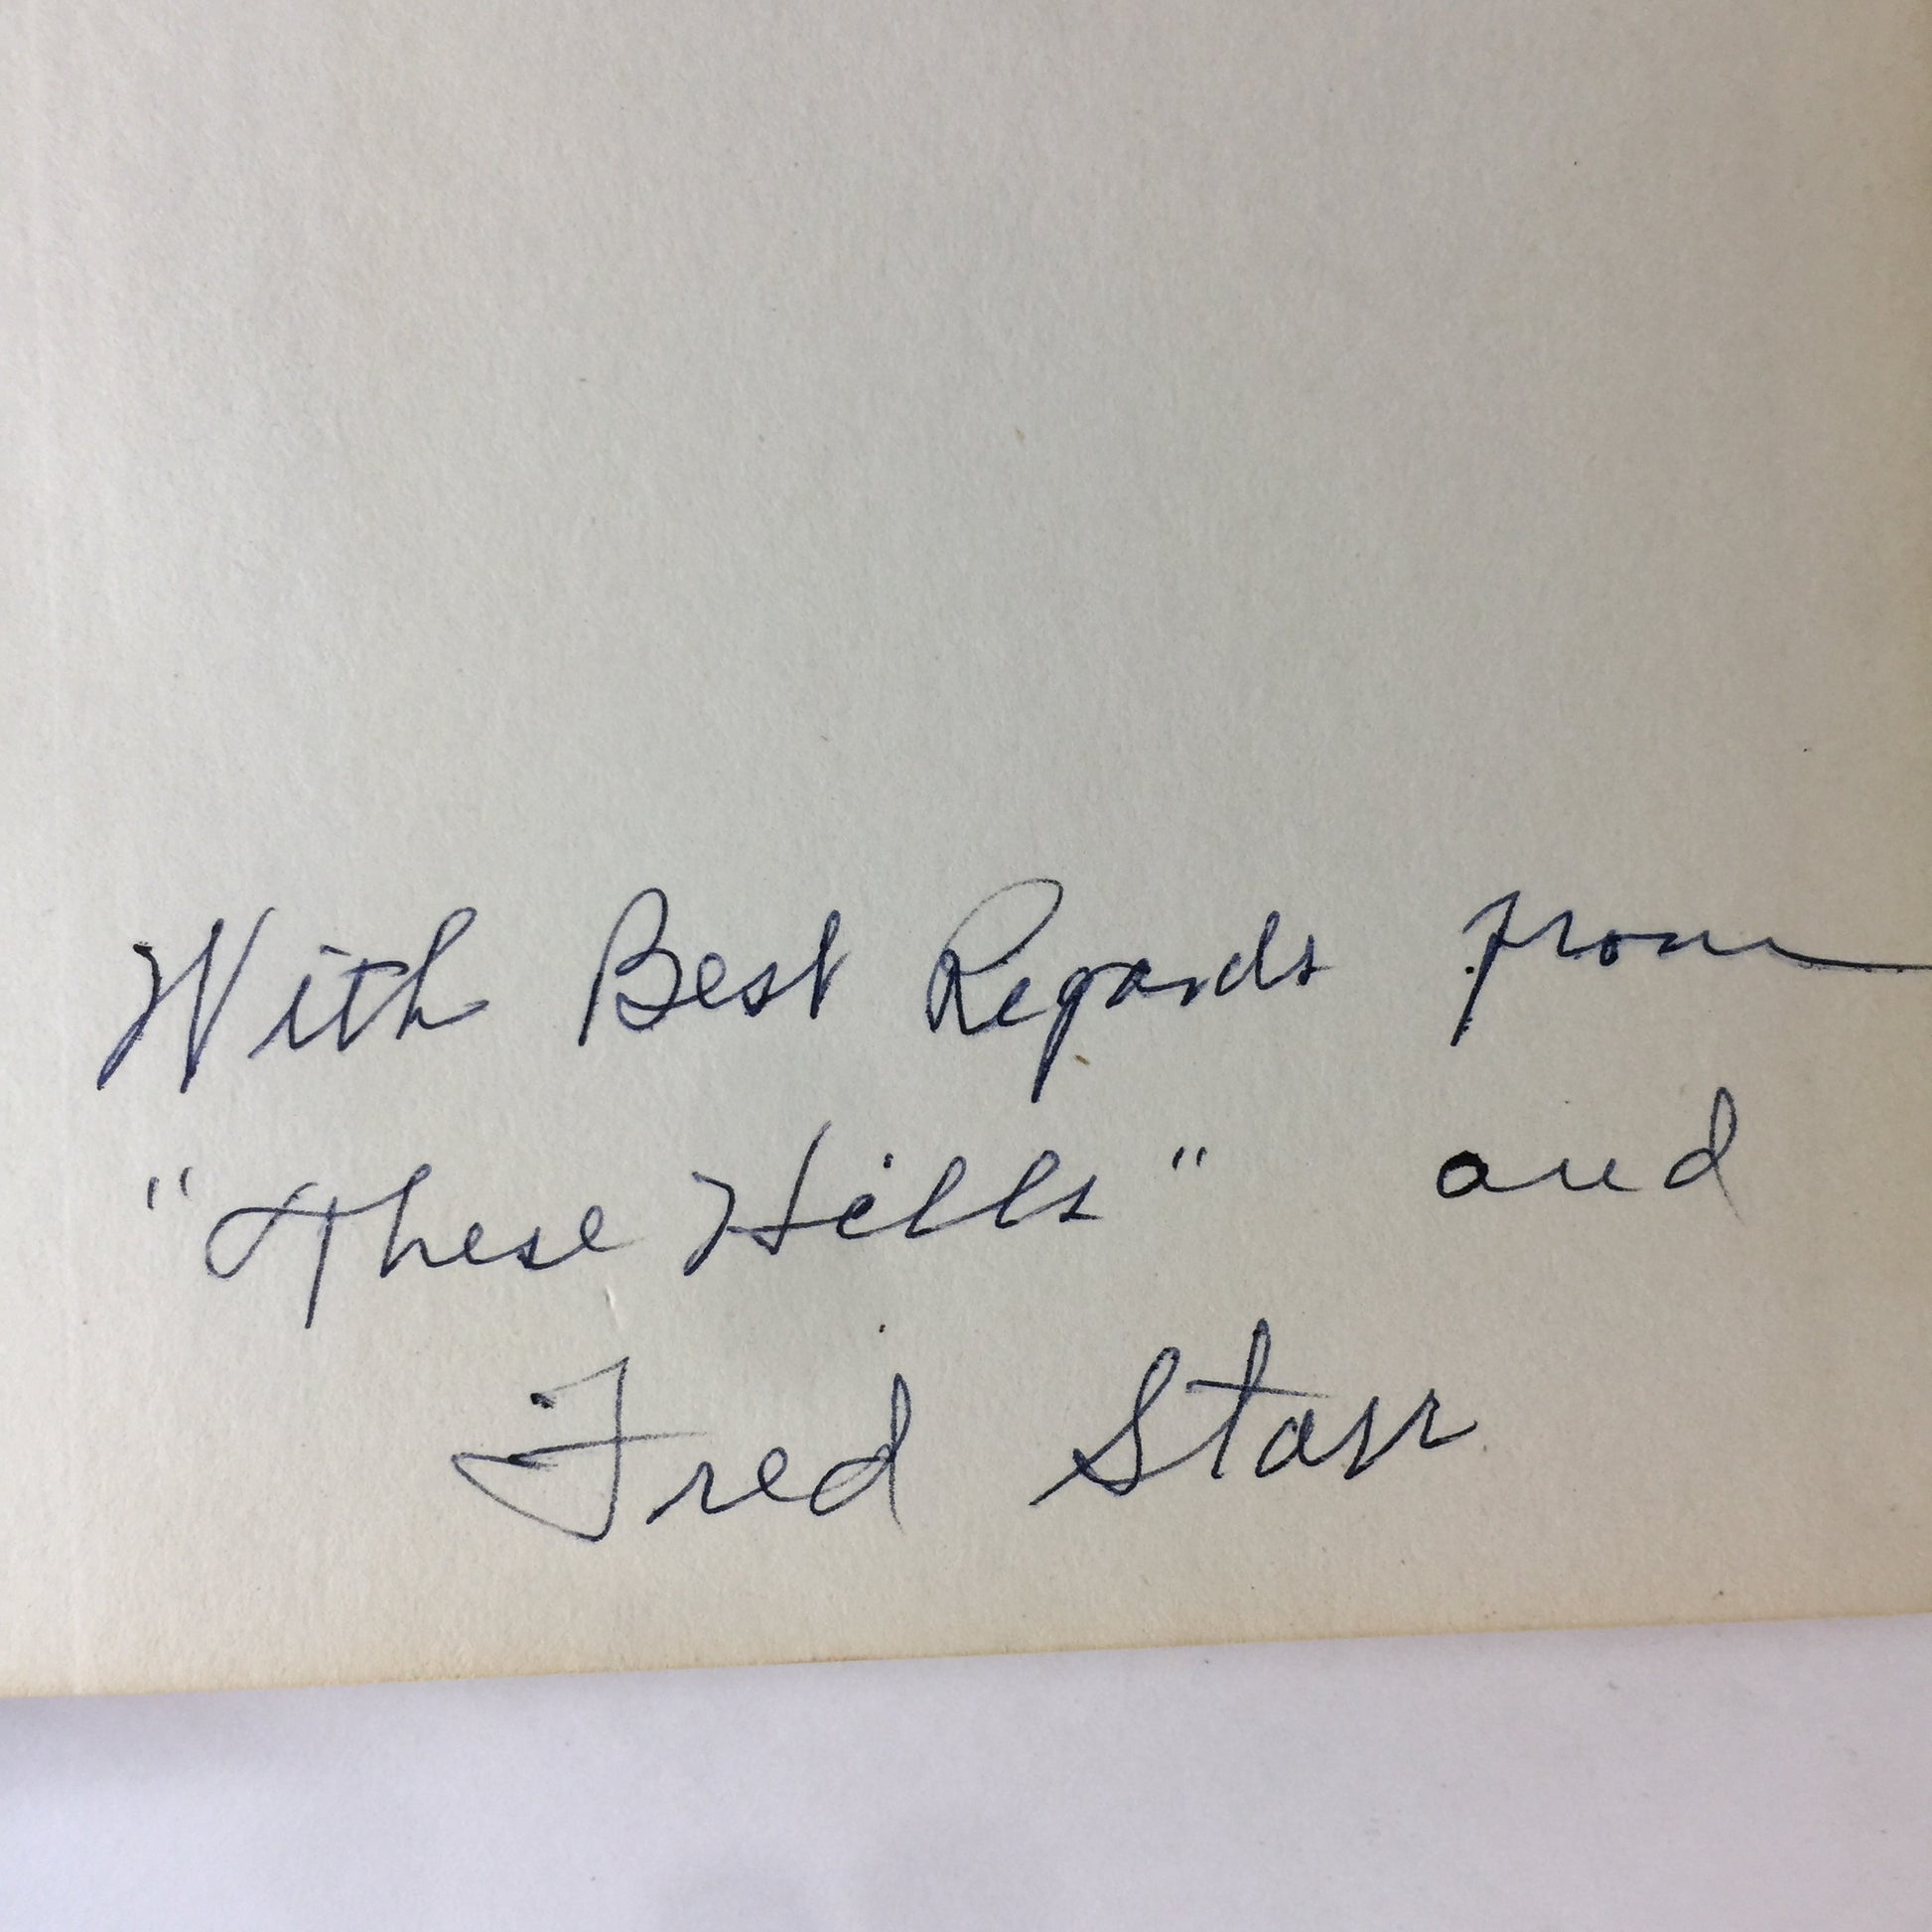 With Best Regards from
"These Hills" and
Fred Starr